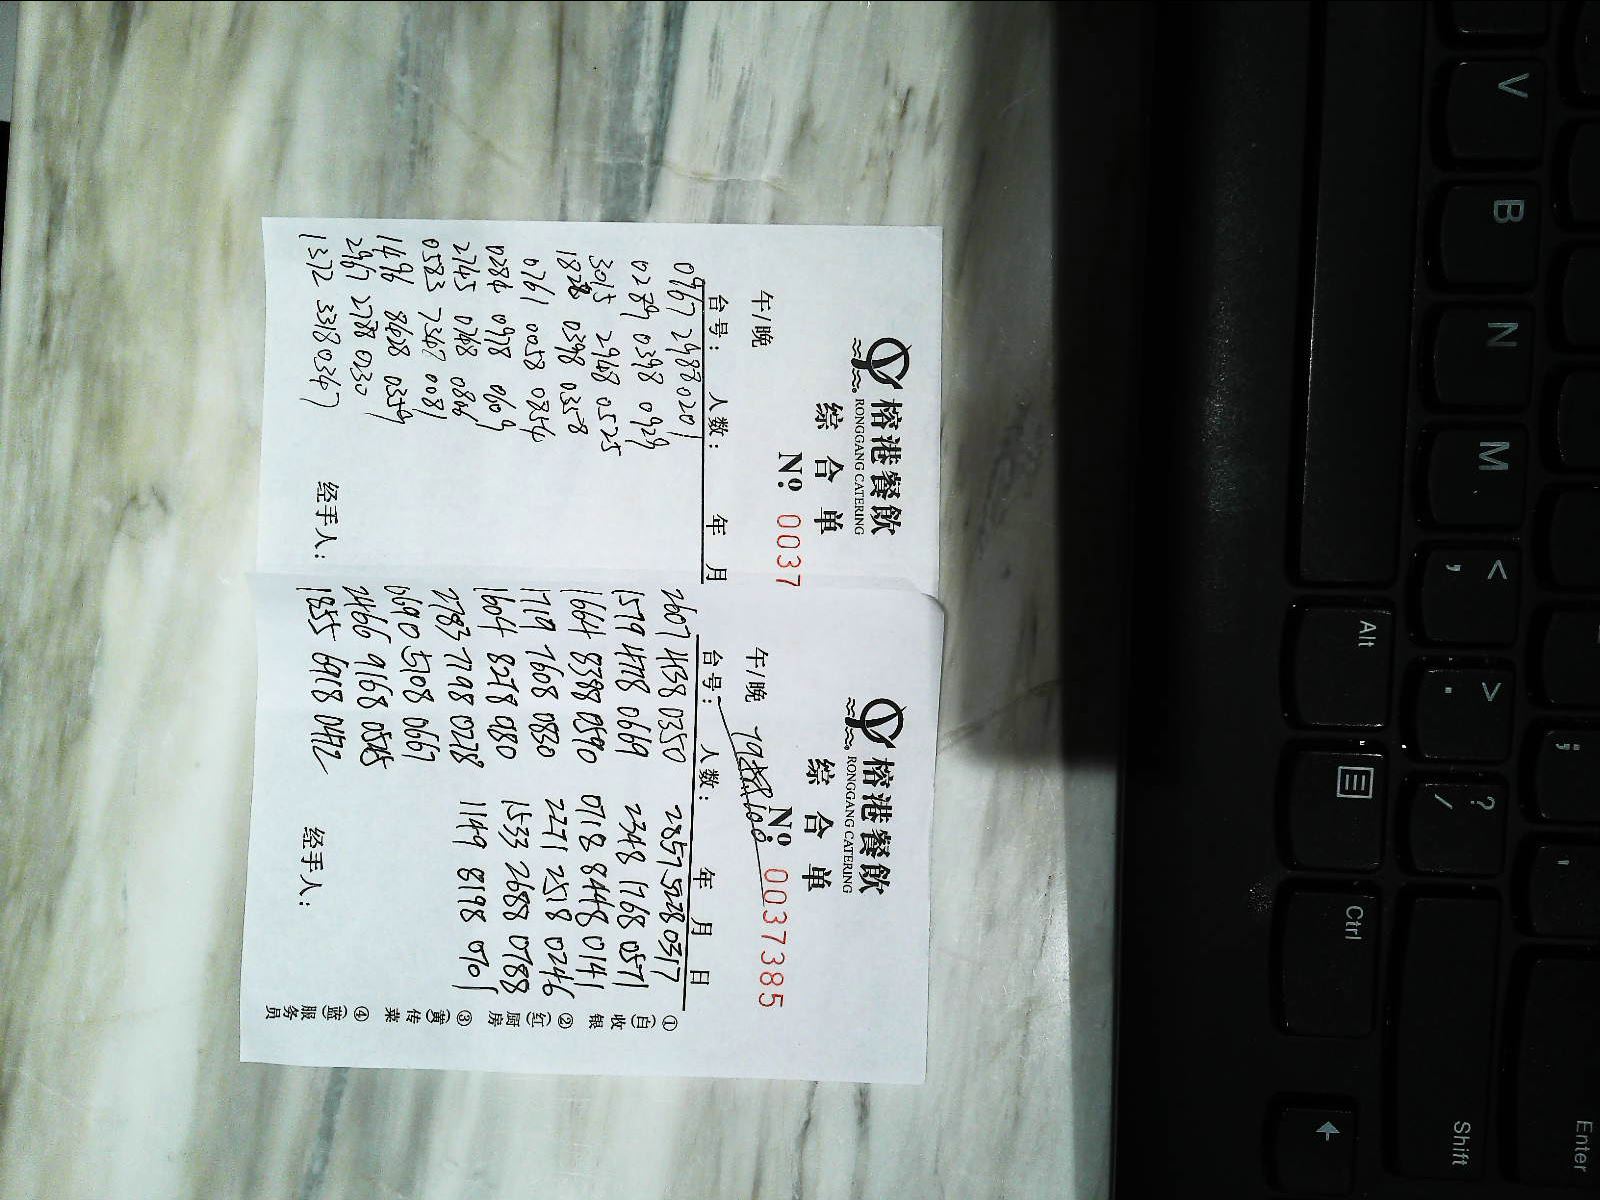 榕港餐飲
RONGGANG CATERING
综合单
Nº 0037
午/晚
台号: 人数: 年 月
0967 2988 0201
0289 0398 0929
3015 2948 0525
1828 0398 0358
0761 0058 0854
0284 0978 0609
2745 0768 0806
0583 7367 0081
1496 8628 0359
2967 2788 0330
1372 3318 0367
经手人:
榕港餐飲
RONGGANG CATERING
综合单
Nº 0037385
午/晚
台号: 人数: 年 月 日
2607 4138 0350 2857 5228 0317
1579 4778 0669 2348 1768 0571
1664 8398 0590 0718 8448 0141
1719 7608 0830 2271 2518 0246
1604 8278 0180 1533 2688 0788
2783 7798 0278 1149 8198 0701
0690 5708 0667
2466 9168 0575
1855 6978 0472
经手人:
①(白)收银 ②(红)厨房 ③(黄)传菜 ④(蓝)服务员
V
B
N
M
< ,
> .
? /
:
;
'
Alt
Ctrl
Shift
Enter